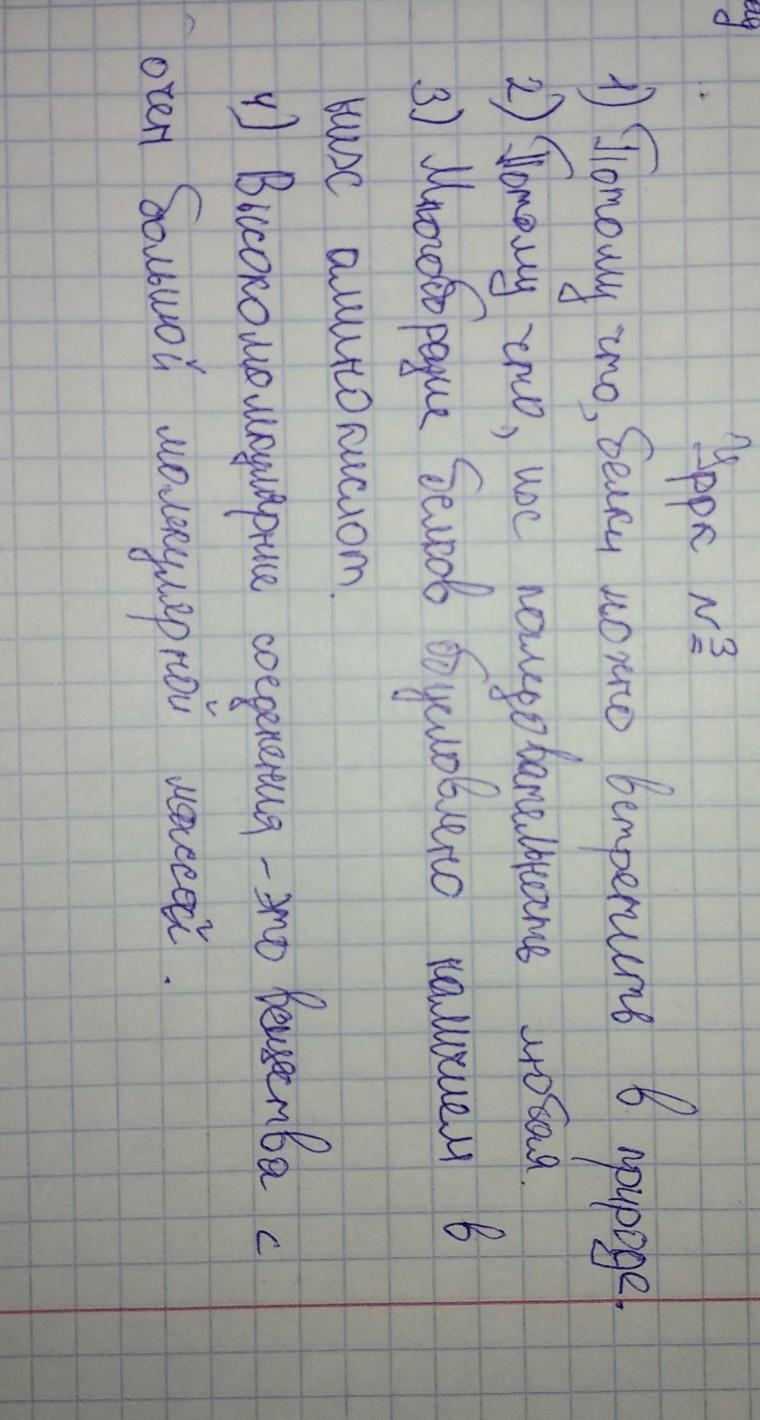 Урок №3
1) Потому что, белки можно встретить в природе.
2) Потому что, их последовательность любая.
3) Многобразие белков обусловлено наличием в
них аминокислот.
4) Высокомомолцулярные соеденения - это вещества с
очен большой молкулярной массой.